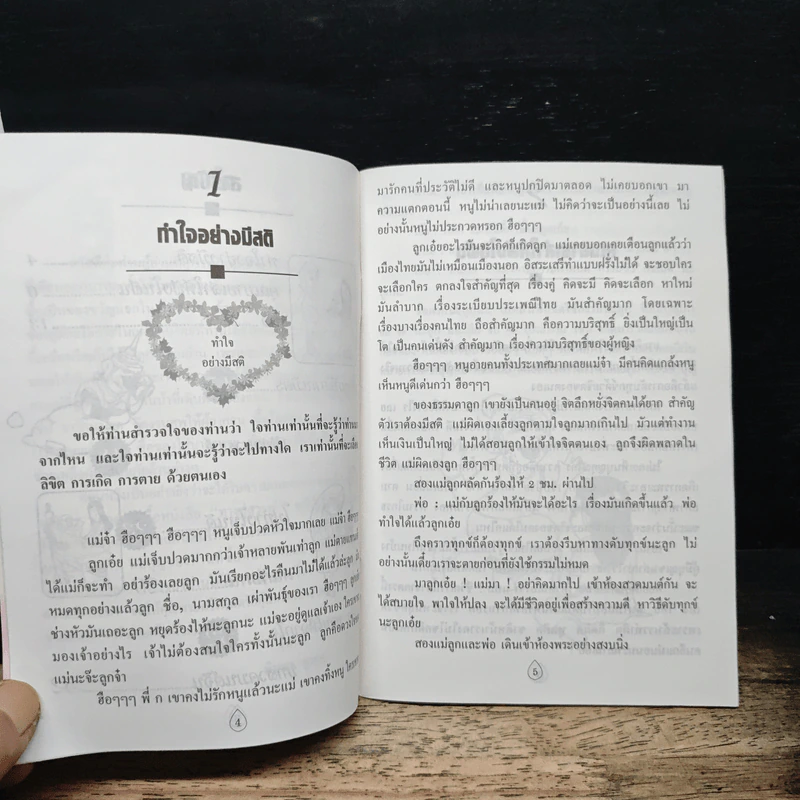 1
ทำใจอย่างมีสติ
ทำใจ
อย่างมีสติ
ขอให้ท่านสำรวจใจของท่านว่า ใจท่านเท่านั้นที่จะรู้ว่าท่านมา
จากไหน และใจท่านเท่านั้นจะรู้ว่าจะไปทางใด เราเท่านั้นที่จะ
ลิขิต การเกิด การตาย ด้วยตนเอง
แม่จ๋า ฮือๆๆๆ ฮือๆๆๆ หนูเจ็บปวดหัวใจมากเลย แม่จ๋า
ลูกเอ๋ย แม่เจ็บปวดมากกว่าเจ้าหลายพันเท่าลูก
ได้แม่ก็จะทำ อย่าร้องเลยลูก มันเรียกอะไรคืนมาไม่ได้แล้วล่ะลูก
หมดทุกอย่างแล้วลูก ชื่อ, นามสกุล เผ่าพันธุ์ของเรา ฮือๆๆๆ
ช่างหัวมันเถอะลูก หยุดร้องไห้นะลูกนะ แม่จะอยู่ดูแลเจ้าเอง
มองเจ้าอย่างไร เจ้าไม่ต้องสนใจใครทั้งนั้นนะลูก
แม่นะจ๊ะลูกจ๋า
ฮือๆๆๆ พี่ ก เขาคงไม่รักหนูแล้วนะแม่ เขาคงทิ้งหนู
4
มารักคนที่ประวัติไม่ดี และหนูปกปิดมาตลอด ไม่เคยบอกเขา มา
ความแตกตอนนี้ หนูไม่น่าเลยนะแม่ ไม่คิดว่าจะเป็นอย่างนี้เลย ไม่
อย่างนั้นหนูไม่ประกวดหรอก ฮือๆๆๆ
ลูกเอ๋ยอะไรมันจะเกิดก็เกิดลูก แม่เคยบอกเคยเตือนลูกแล้วว่า
เมืองไทยมันไม่เหมือนเมืองนอก อิสระเสรีทำแบบฝรั่งไม่ได้ จะชอบใคร
จะเลือกใคร ตกลงใจสำคัญที่สุด เรื่องคู่ คิดจะมี คิดจะเลือก หาใหม่
มันลำบาก เรื่องระเบียบประเพณีไทย มันสำคัญมาก โดยเฉพาะ
เรื่องบางเรื่องคนไทย ถือสำคัญมาก คือความบริสุทธิ์ ยิ่งเป็นใหญ่เป็น
โต เป็นคนเด่นดัง สำคัญมาก เรื่องความบริสุทธิ์ของผู้หญิง
ฮือๆๆๆ หนูอายคนทั้งประเทศมากเลยแม่จ๋า มีคนคิดแกล้งหนู
เห็นหนูดีเด่นกว่า ฮือๆๆๆ
ของธรรมดาลูก เขายังเป็นคนอยู่ จิตลึกหยั่งจิตคนได้ยาก สำคัญ
ตัวเราต้องมีสติ แม่ผิดเองเลี้ยงลูกตามใจลูกมากเกินไป มัวแต่ทำงาน
เห็นเงินเป็นใหญ่ ไม่ได้สอนลูกให้เข้าใจจิตตนเอง ลูกจึงผิดพลาดใน
ชีวิต แม่ผิดเองลูก ฮือๆๆๆ
สองแม่ลูกผลัดกันร้องไห้ 2 ชม. ผ่านไป
พ่อ : แม่กับลูกร้องไห้มันจะได้อะไร เรื่องมันเกิดขึ้นแล้ว พ่อ
ทำใจได้แล้วลูกเอ๋ย
ถึงคราวทุกข์ก็ต้องทุกข์ เราต้องรีบหาทางดับทุกข์นะลูก ไม่
อย่างนั้นเดี๋ยวเราจะตายก่อนที่ยังใช้กรรมไม่หมด
มาลูกเอ๋ย ! แม่มา ! อย่าคิดมากไป เข้าห้องสวดมนต์กัน จะ
ได้สบายใจ พาใจให้ปลง จะได้มีชีวิตอยู่เพื่อสร้างความดี หาวิธีดับทุกข์
นะลูกเอ๋ย
สองแม่ลูกและพ่อ เดินเข้าห้องพระอย่างสงบนิ่ง
5